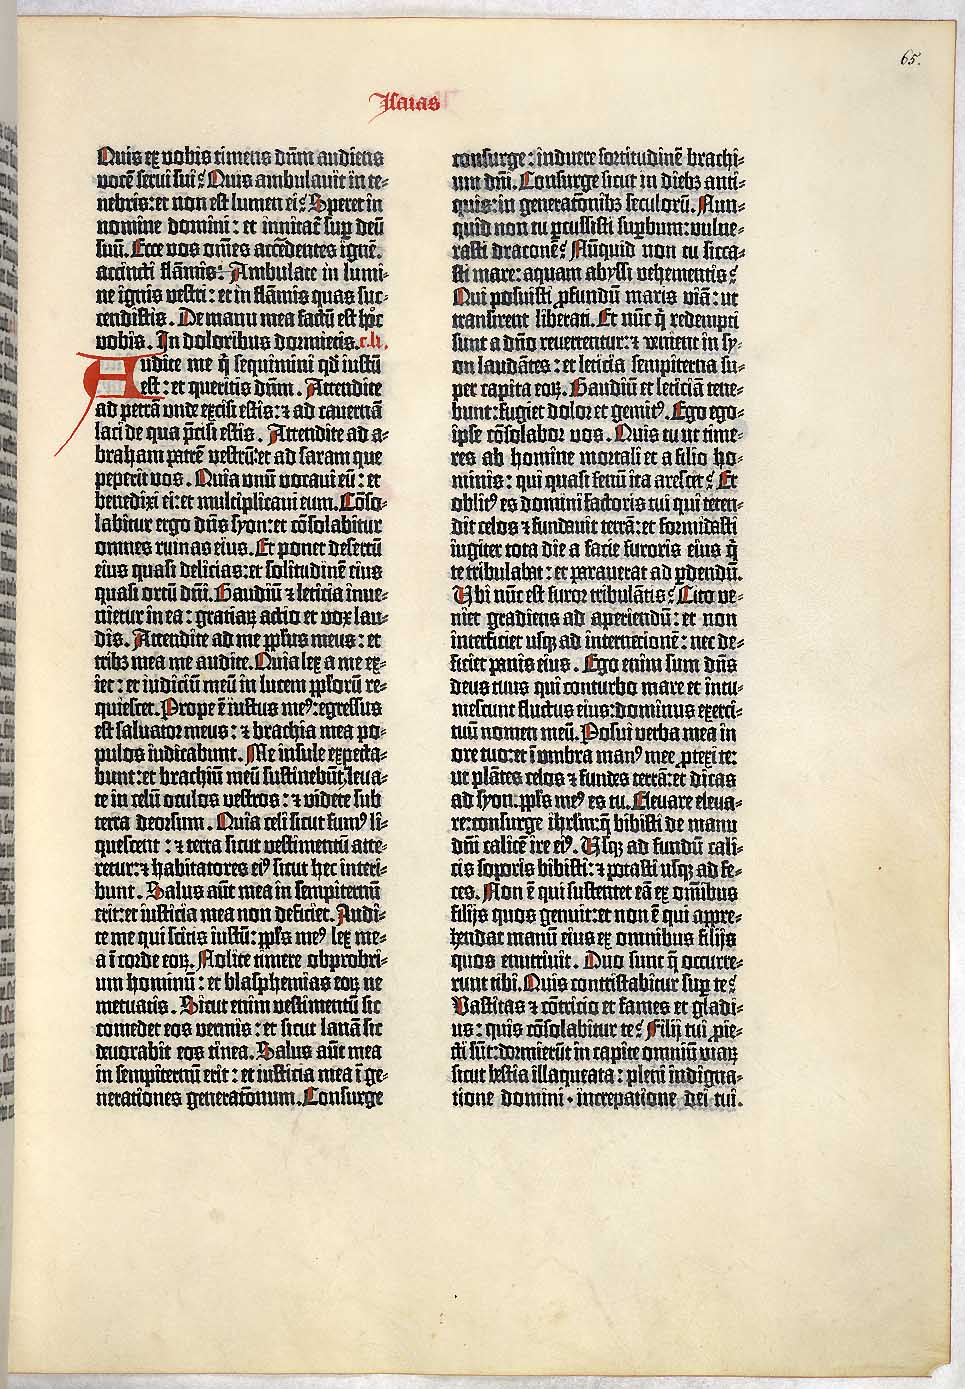 65.
Isaias
Quis ex vobis timens dn̄m audiens
vocē servi sui? Quis ambulavit in te-
nebris: et non est lumen ei? Speret in
nomine domini: et innitat̄ sup̄ deū
suū. Ecce vos om̄es accēdentes ignē.
accincti flāmis: Ambulate in lumi-
ne ignis vestri: et in flāmis quas suc-
cendistis. De manu mea factū est hoc
vobis. In doloribus dormietis. c. li.
Audite me q̄ sequimini qd̄ iustū
est: et queritis dn̄m. Attendite
ad petrā unde excisi estis: ⁊ ad cavernā
laci de qua p̄cisi estis. Attendite ad a-
braham patrē vestrū: et ad saram que
peperit vos. Quia unū vocavi eū: et
benedixi ei: et multiplicavi eum. Cōso-
labitur ergo dn̄s syon: et cōsolabitur
omnes ruinas eius. Et ponet desertū
eius quasi delicias: et solitudinē eius
quasi ortū dn̄i. Gaudiū ⁊ leticia inve-
nietur in ea: gratiaꝝ actio et vox lau-
dis. Attendite ad me ppl̄us meus: et
tribꝫ mea me audite. Quia lex a me ex-
iet: et iudiciū meū in lucem ppl̄orū re-
quiescet. Prope ē iustus meꝰ: egressus
est salvator meus: ⁊ brachia mea po-
pulos iudicabunt. Me insule expecta-
bunt: et brachiū meū sustinebūt. Leva-
te in celū oculos vestros: ⁊ videte sub
terra deorsum. Quia celi sicut fumꝰ li-
quescent: ⁊ terra sicut vestimentū atte-
retur: ⁊ habitatores eiꝰ sicut hec interi-
bunt. Salus aūt mea in sempiternū
erit: et iusticia mea non deficiet. Audi-
te me qui scitis iustū: ppl̄s meꝰ lex me-
a ī corde eoꝝ. Nolite timere obprobri-
um hominū: et blasphemias eoꝝ ne
metuatis. Sicut enim vestimentū sic
comedet eos vermis: et sicut lanā sic
devorabit eos tinea. Salus aūt mea
in sempiternū erit: et iusticia mea ī ge-
nerationes generatōnum. Consurge
consurge: induere fortitudinē brachi-
um dn̄i. Consurge sicut in diebꝫ anti-
quis: in generatōnibꝫ seculorū. Nun-
quid non tu p̱cussisti sup̱bum: vulne-
rasti draconē? Nūquid non tu sicca-
sti mare: aquam abyssi vehementis?
Qui posuisti ꝓfundū maris viā: ut
transirent liberati. Et nūc q̄ redempti
sunt a dn̄o revertentur: ⁊ venient in sy-
on laudātes: et leticia sempiterna su-
per capita eoꝝ. Gaudiū et leticiā tene-
bunt: fugiet dolor et gemitꝰ. Ego ego-
ipse cōsolabor vos. Quis tu ut time-
res ab homine mortali et a filio ho-
minis: qui quasi fenū ita arescet? Et
oblitꝰ es domini factoris tui qui teten-
dit celos ⁊ fundavit terrā: et formidasti
iugiter tota die a facie furoris eius q̄
te tribulabat: et paraverat ad p̱dendū.
Ubi nūc est furor tribulātis? Cito ve-
niet gradiens ad aperiendū: et non
interficiet usqꝫ ad internecionē: nec de-
ficiet panis eius. Ego enim sum dn̄s
deus tuus qui conturbo mare et intu-
mescunt fluctus eius: dominus exerci-
tuū nomen meū. Posui verba mea in
ore tuo: et ī umbra manꝰ mee ꝓtexi te:
ut plātes celos ⁊ fundes terrā: et dicas
ad syon. ppl̄s meꝰ es tu. Elevare eleva-
re: consurge ihrl̄m: q̄ bibisti de manu
dn̄i calicē ire eiꝰ. Usqꝫ ad fundū cali-
cis soporis bibisti: ⁊ potasti usqꝫ ad fe-
ces. Non ē qui sustentet eā ex om̄ibus
filijs quos genuit: et non ē qui appre-
hendat manū eius ex omnibus filijs
quos enutrivit. Duo sunt q̄ occurre-
runt tibi. Quis contristabitur sup̱ te?
Vastitas ⁊ cōtricio et fames et gladi-
us: quis cōsolabitur te? Filij tui ꝓie-
cti sūt: dormierūt in capite omniū viaꝝ
sicut bestia illaqueata: pleni indigna-
tione domini · increpatione dei tui.